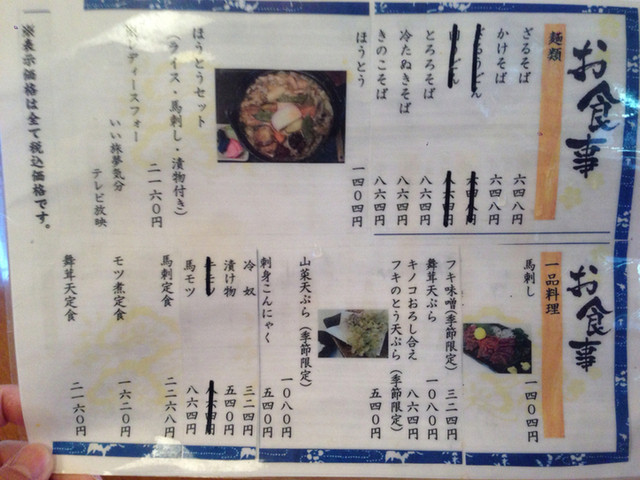 お食事
麺類
ざるそば 六四八円
かけそば 六四八円
ざるうどん 六四八円
うどん 八六四円
とろろそば 八六四円
冷たぬきそば 八六四円
きのこそば 八六四円
ほうとう 一四〇四円
ほうとうセット
(ライス・馬刺し・漬物付き) 二一六〇円
※レディースフォー
いい旅夢気分
テレビ放映
※表示価格は全て税込価格です。
お食事
一品料理
馬刺し 一四〇四円
フキ味噌(季節限定) 三二四円
舞茸天ぷら 一〇八〇円
キノコおろし合え 八六四円
フキのとう天ぷら(季節限定) 五四〇円
山菜天ぷら(季節限定) 一〇八〇円
刺身こんにゃく 五四〇円
冷奴 三二四円
漬け物 五四〇円
八六四円
馬モツ 八六四円
馬刺定食 二二六八円
モツ煮定食 一六二〇円
舞茸天定食 二一六〇円